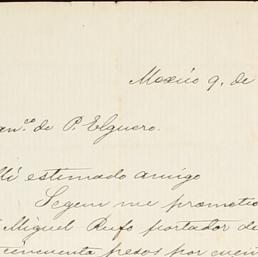 Mexico 9. de
an.co de P. Elguero.
Mi estimado amigo
Segun me prometio
Miguel Rufo portador de
cincuenta pesos por cuen